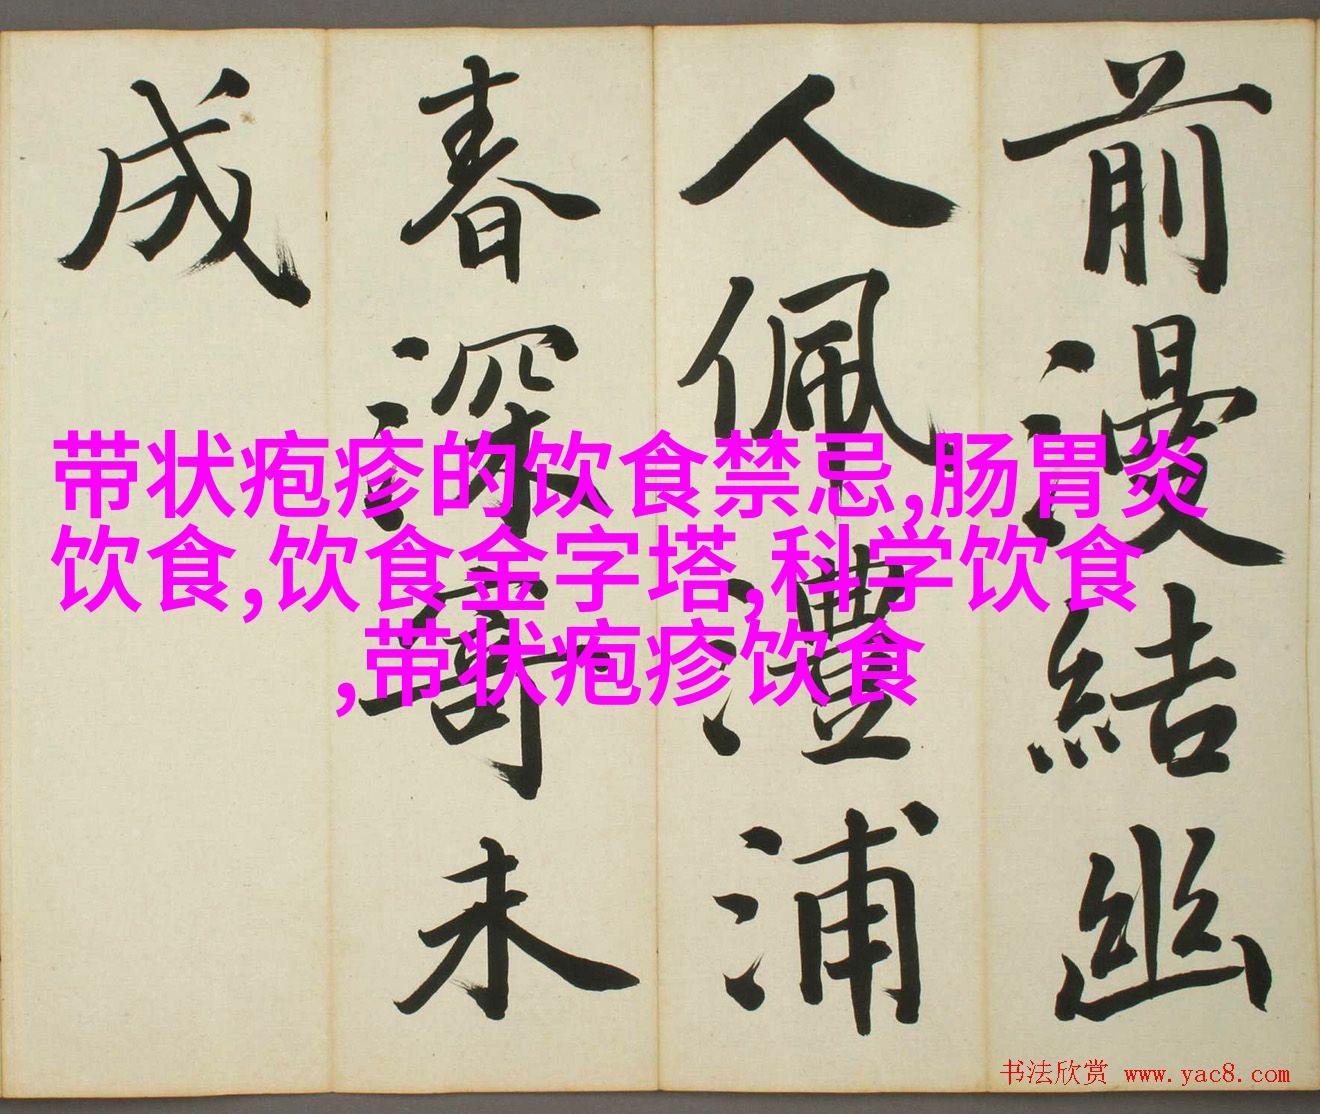 前漫結幽
人佩澧浦
春深寄未
成
带状疱疹的饮食禁忌,肠胃炎
饮食,饮食金字塔,科学饮食
,带状疱疹饮食
书法欣赏 www.yac8.com